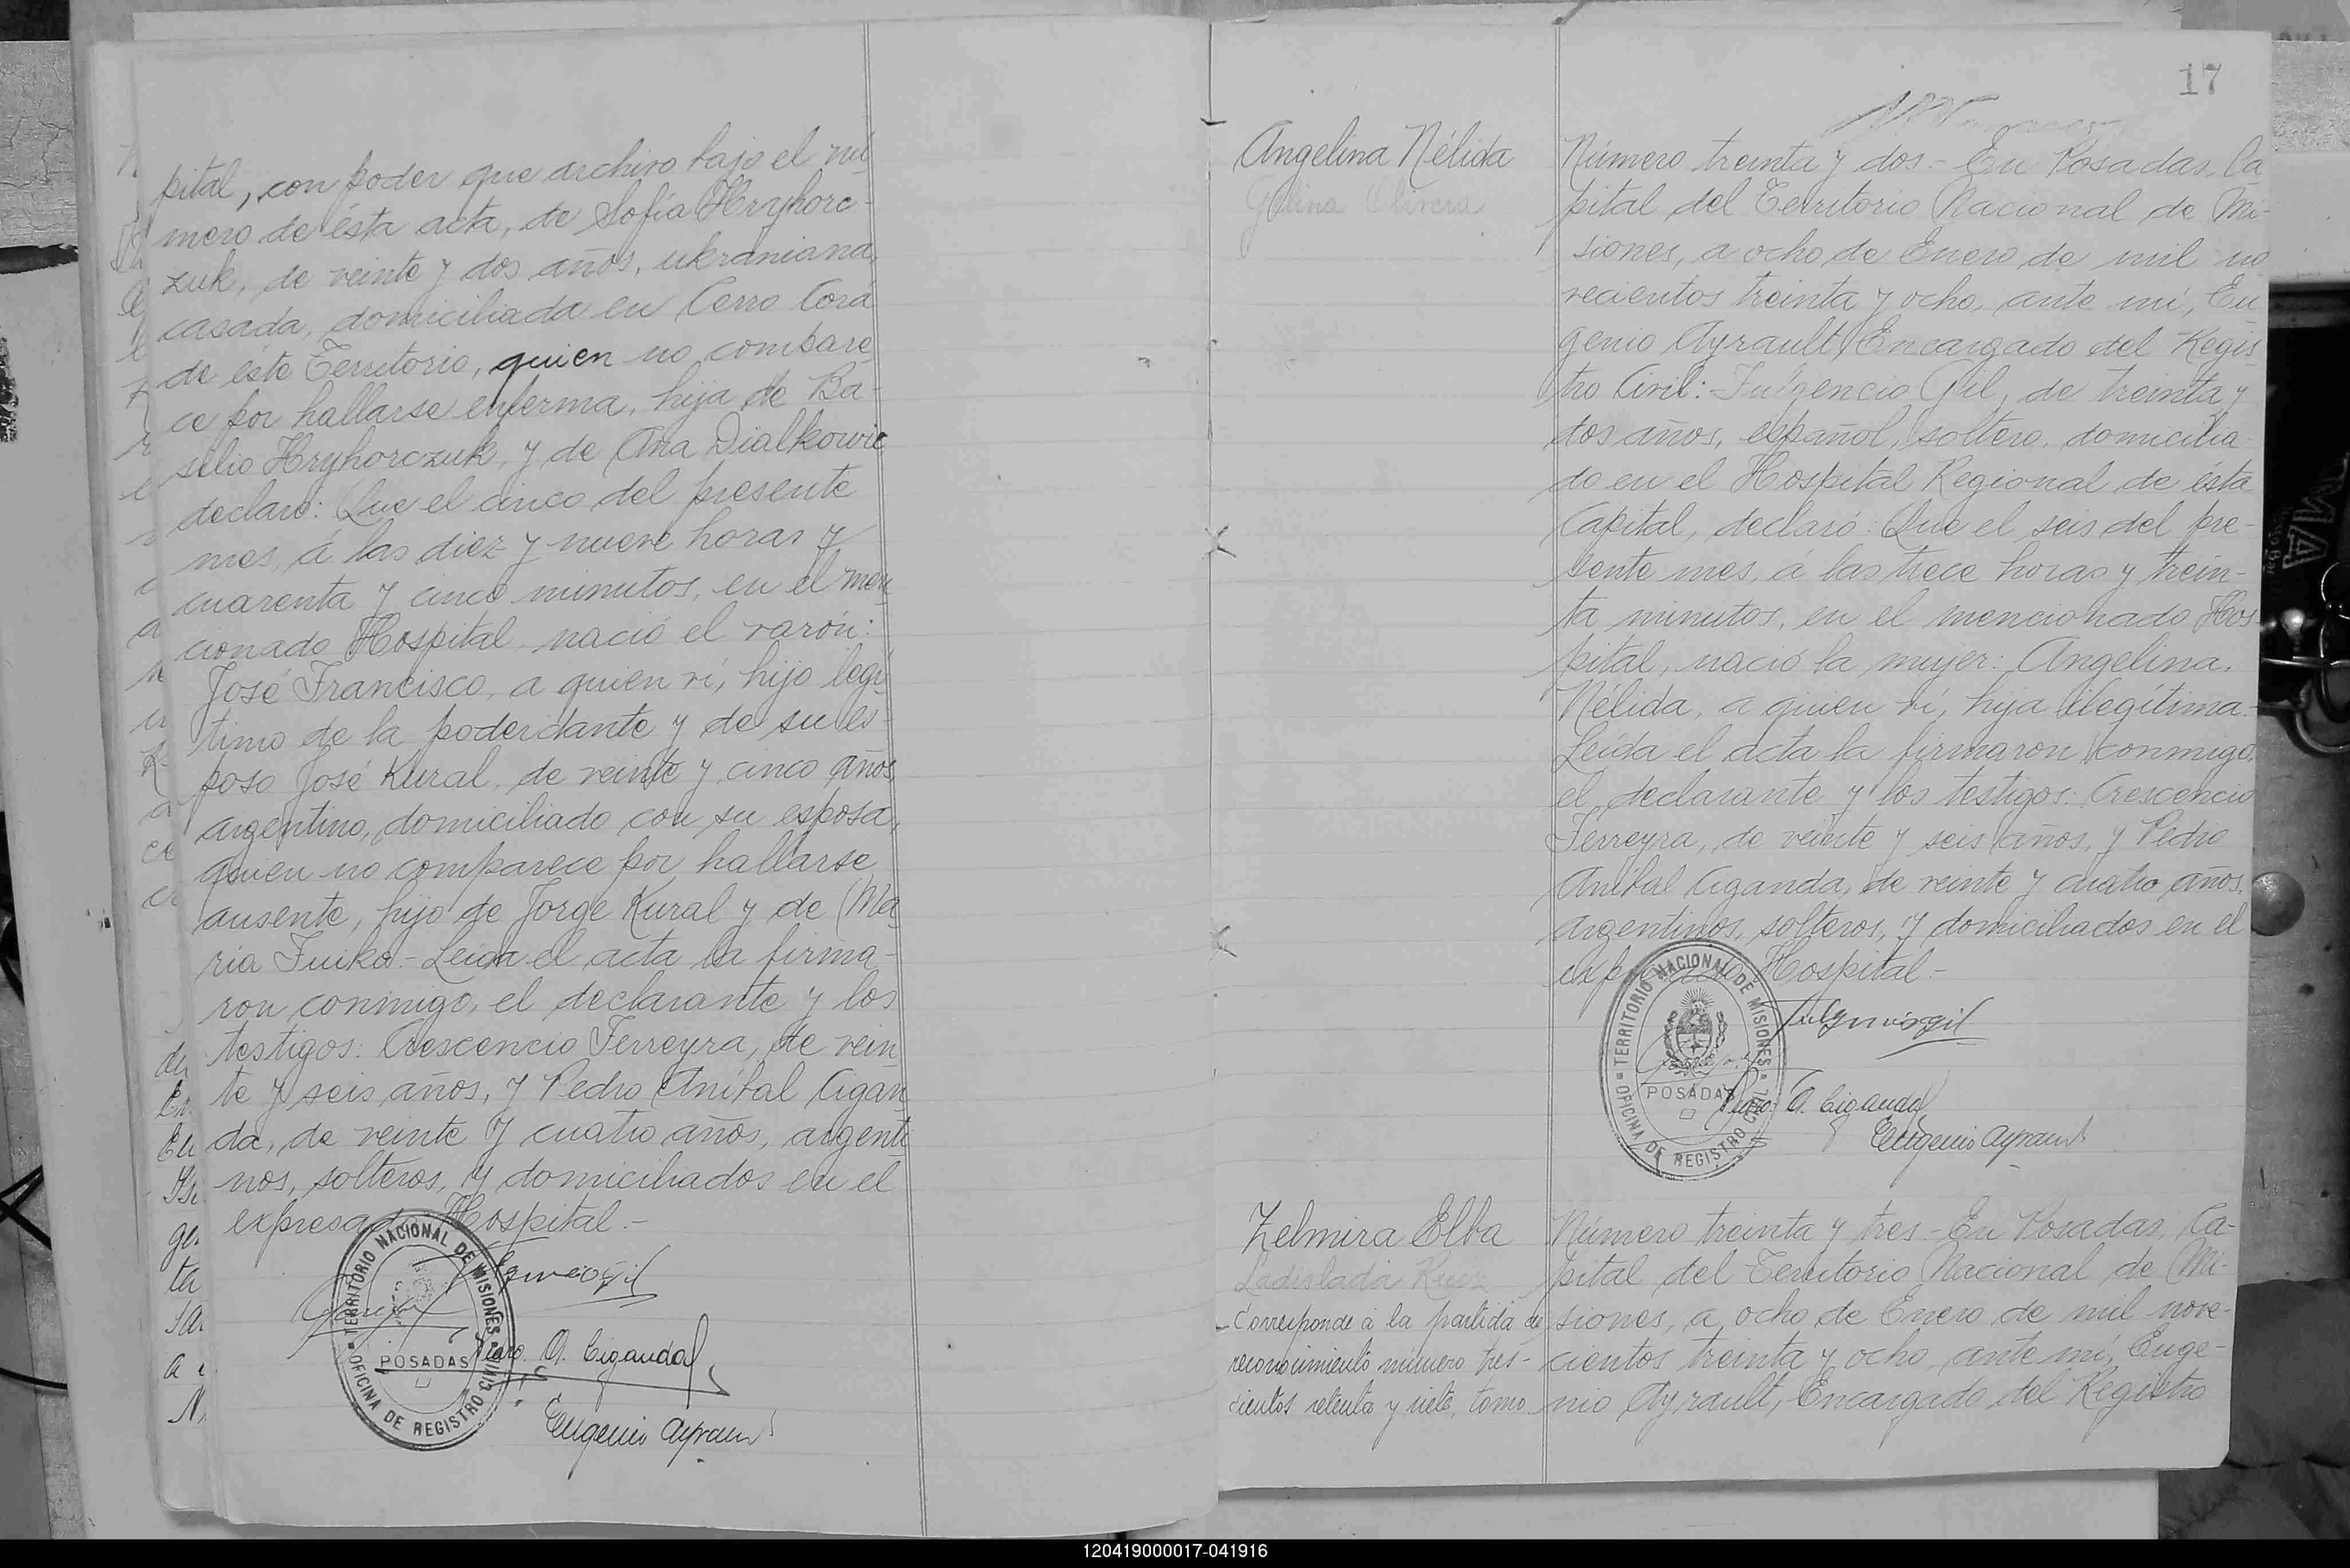 pital, con poder que archivo bajo el nú
mero de ésta acta, de Sofía Hryhorc-
zuk, de veinte y dos años, ukraniana,
casada, domiciliada en Cerro Corá
de éste Territorio, quien no compare
ce por hallarse enferma, hija de Ba-
silio Hryhorczuk y de Ana Dialkowic
declaró: Que el cinco del presente
mes, á las diez y nueve horas y
cuarenta y cinco minutos, en el men
cionado Hospital, nació el varón:
José Francisco, a quien ví, hijo legí
timo de la poderdante y de su es-
poso José Kural, de veinte y cinco años,
argentino, domiciliado con su esposa,
quien no comparece por hallarse
ausente, hijo de Jorge Kural y de Ma
ria Fuiko.- Leída el acta la firma-
ron conmigo, el declarante y los
testigos: Crescencio Ferreyra, de vein
te y seis años, y Pedro Aníbal Cigan
da, de veinte y cuatro años, argenti
nos, solteros, y domiciliados en el
expresado Hospital.-
TERRITORIO NACIONAL DE MISIONES
POSADAS
OFICINA DE REGISTRO CIVIL
Pedro A. Ciganda
Eugenio Ayrault
17
Angelina Nélida
Olivera
Número treinta y dos.- En Posadas, Ca
pital del Territorio Nacional de Mi-
siones, a ocho de Enero de mil no
vecientos treinta y ocho, ante mí, Eu
genio Ayrault, Encargado del Regis
tro Civil: Fulgencio Gil, de treinta y
dos años, español, soltero, domicilia-
do en el Hospital Regional de ésta
Capital, declaró: Que el seis del pre-
sente mes, á las trece horas y trein-
ta minutos, en el mencionado Hos-
pital, nació la mujer: Angelina,
Nélida, a quien ví, hija ilegítima.-
Leída el acta la firmaron conmigo,
el declarante y los testigos: Crescencio
Ferreyra, de veinte y seis años, y Pedro
Aníbal Ciganda, de veinte y cuatro años,
argentinos, solteros, y domiciliados en el
expresado Hospital.-
TERRITORIO NACIONAL DE MISIONES
POSADAS
OFICINA DE REGISTRO CIVIL
Fulgencio Gil
Pedro A. Ciganda
Eugenio Ayrault
Zelmira Elba
Ladislada
Corresponde á la partida de
reconocimiento número tres-
cientos setenta y siete, tomo
Número treinta y tres.- En Posadas, Ca-
pital del Territorio Nacional de Mi-
siones, a ocho de Enero de mil nove-
cientos treinta y ocho, ante mí, Euge-
nio Ayrault, Encargado del Registro
120419000017-041916